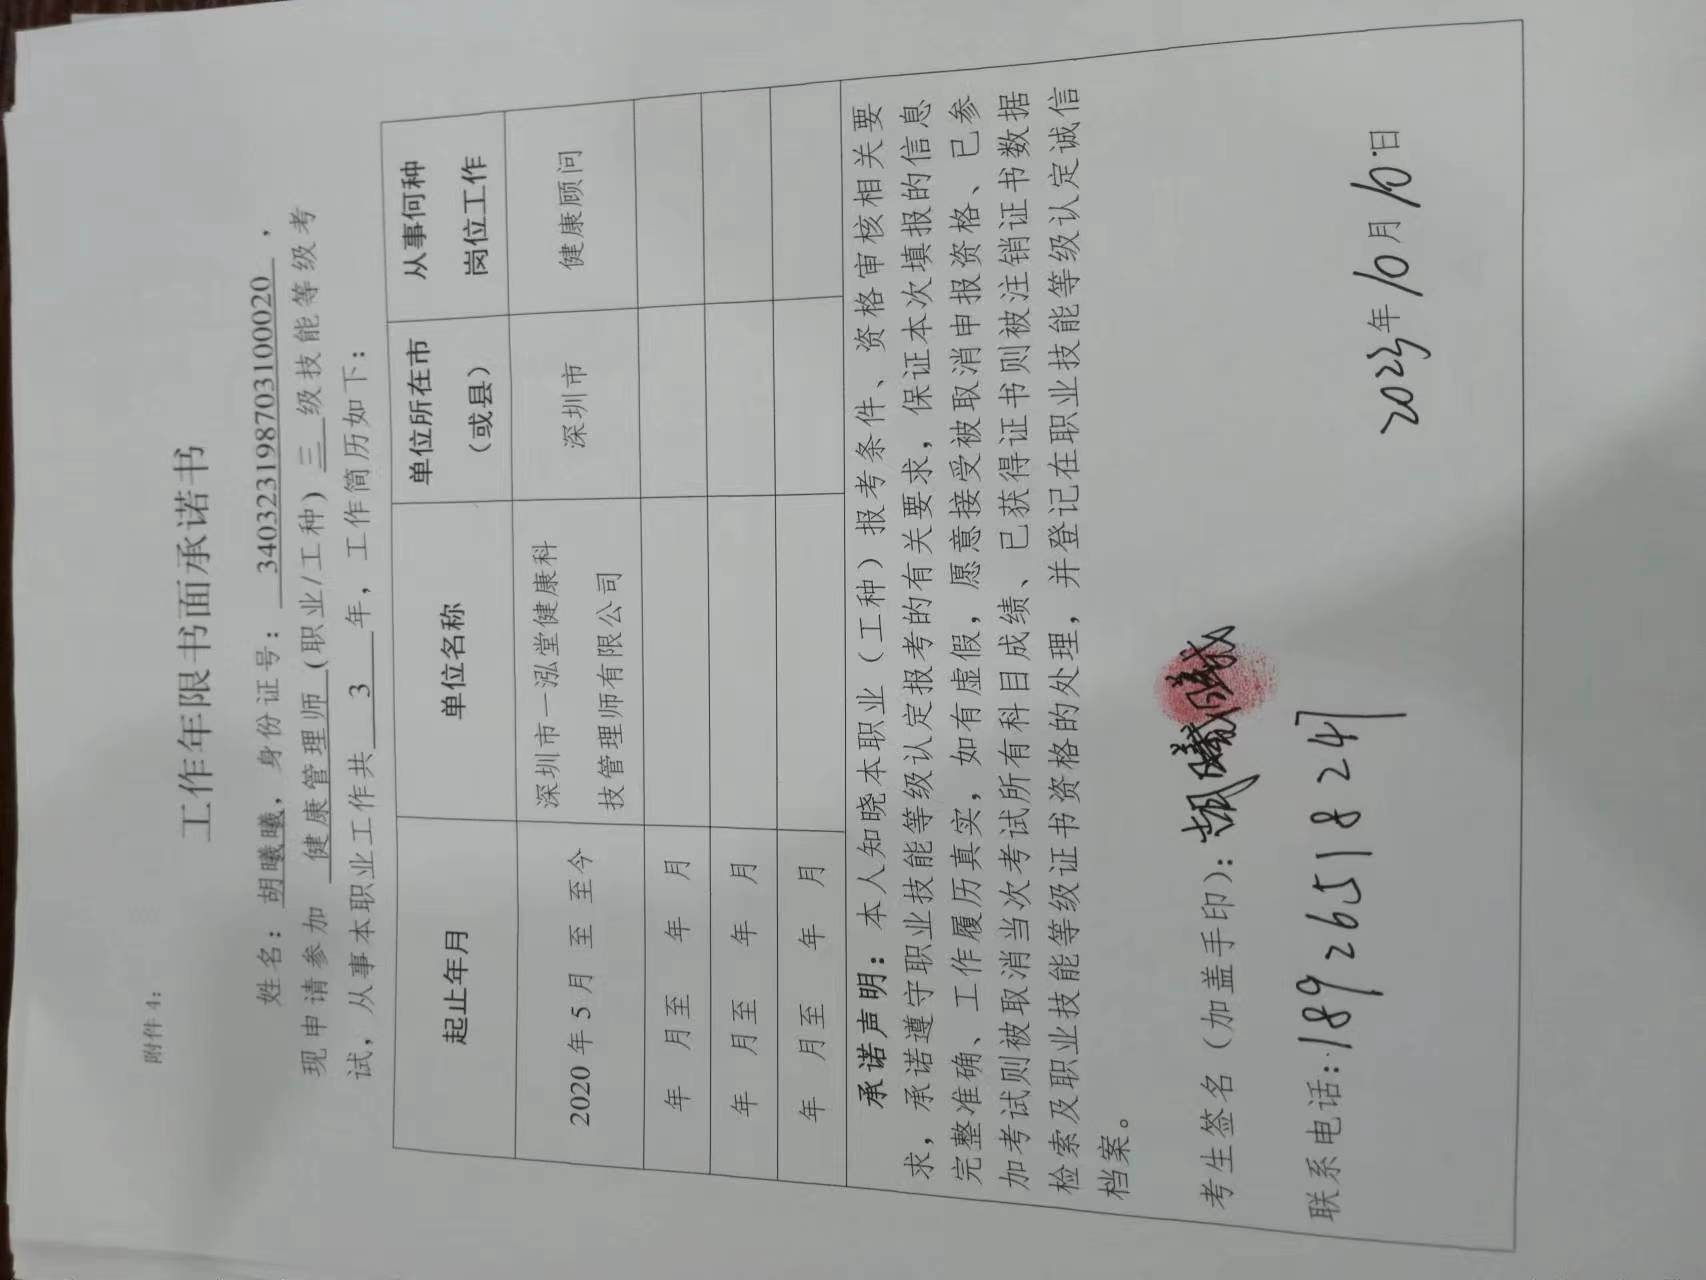 附件 4:
工作年限书面承诺书
姓名：胡曦曦，身份证号：340323198703100020，
现申请参加 健康管理师（职业/工种）三 级技能等级考
试，从事本职业工作共 3 年，工作简历如下：
起止年月 单位名称 单位所在市（或县） 从事何种岗位工作
2020 年 5 月 至 至今 深圳市一泓堂健康科技管理师有限公司 深圳市 健康顾问
年 月至 年 月
年 月至 年 月
年 月至 年 月
承诺声明：本人知晓本职业（工种）报考条件、资格审核相关要
求，承诺遵守职业技能等级认定报考的有关要求，保证本次填报的信息
完整准确、工作履历真实，如有虚假，愿意接受被取消申报资格、已参
加考试则被取消当次考试所有科目成绩、已获得证书则被注销证书数据
检索及职业技能等级证书资格的处理，并登记在职业技能等级认定诚信
档案。
考生签名（加盖手印）：胡曦曦
联系电话：18926518247
2023年10月10日